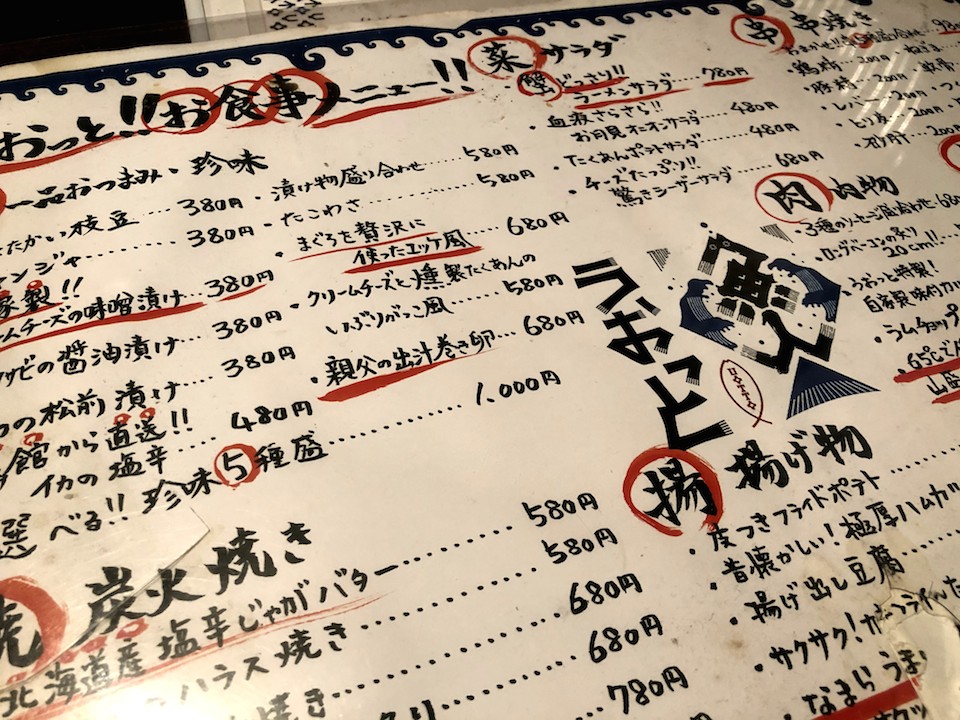 おっと!!お食事メニュー!!
一品おつまみ・珍味
たかい枝豆…380円
ンジャ………380円
製!!
ームチーズの味噌漬け…380円
サビの醤油漬け…380円
の松前漬け…380円
館から直送!!
イカの塩辛…480円
選べる!!珍味5種盛………1.000円
・漬け物盛り合わせ……580円
・たこわさ………580円
・まぐろを贅沢に
使ったユッケ風…680円
・クリームチーズと燻製たくあんの
いぶりがっこ風…580円
・親父の出汁巻き卵…680円
炭火焼き
北海道産塩辛じゃがバター………580円
ハラス焼き………580円
き………680円
680円
780円
菜 サラダ
・蟹どっさり!!
ラーメンサラダ……780円
・血液さらさら!!
お月見オニオンサラダ…480円
・たくあんポテトサラダ…480円
・チーズたっぷり!!
驚きシーザーサラダ…680円
串 串焼き
200円
200円
200円
200円
肉 肉物
・3種のソーセージ盛合わせ
・ロングベーコンの炙り
20cm!!
・うおっと特製!
自家製味付カル
・ラムチョップ
・65℃で
山盛
うおっと
HOTTO
揚 揚げ物
・皮つきフライドポテト
・昔懐かしい!極厚ハムカツ
・揚げ出し豆腐
・サクサク!
なまらうま